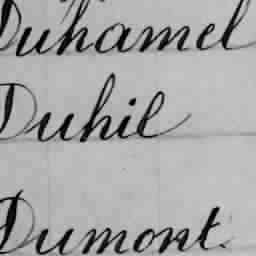 Duhamel
Duhil
Dumont.